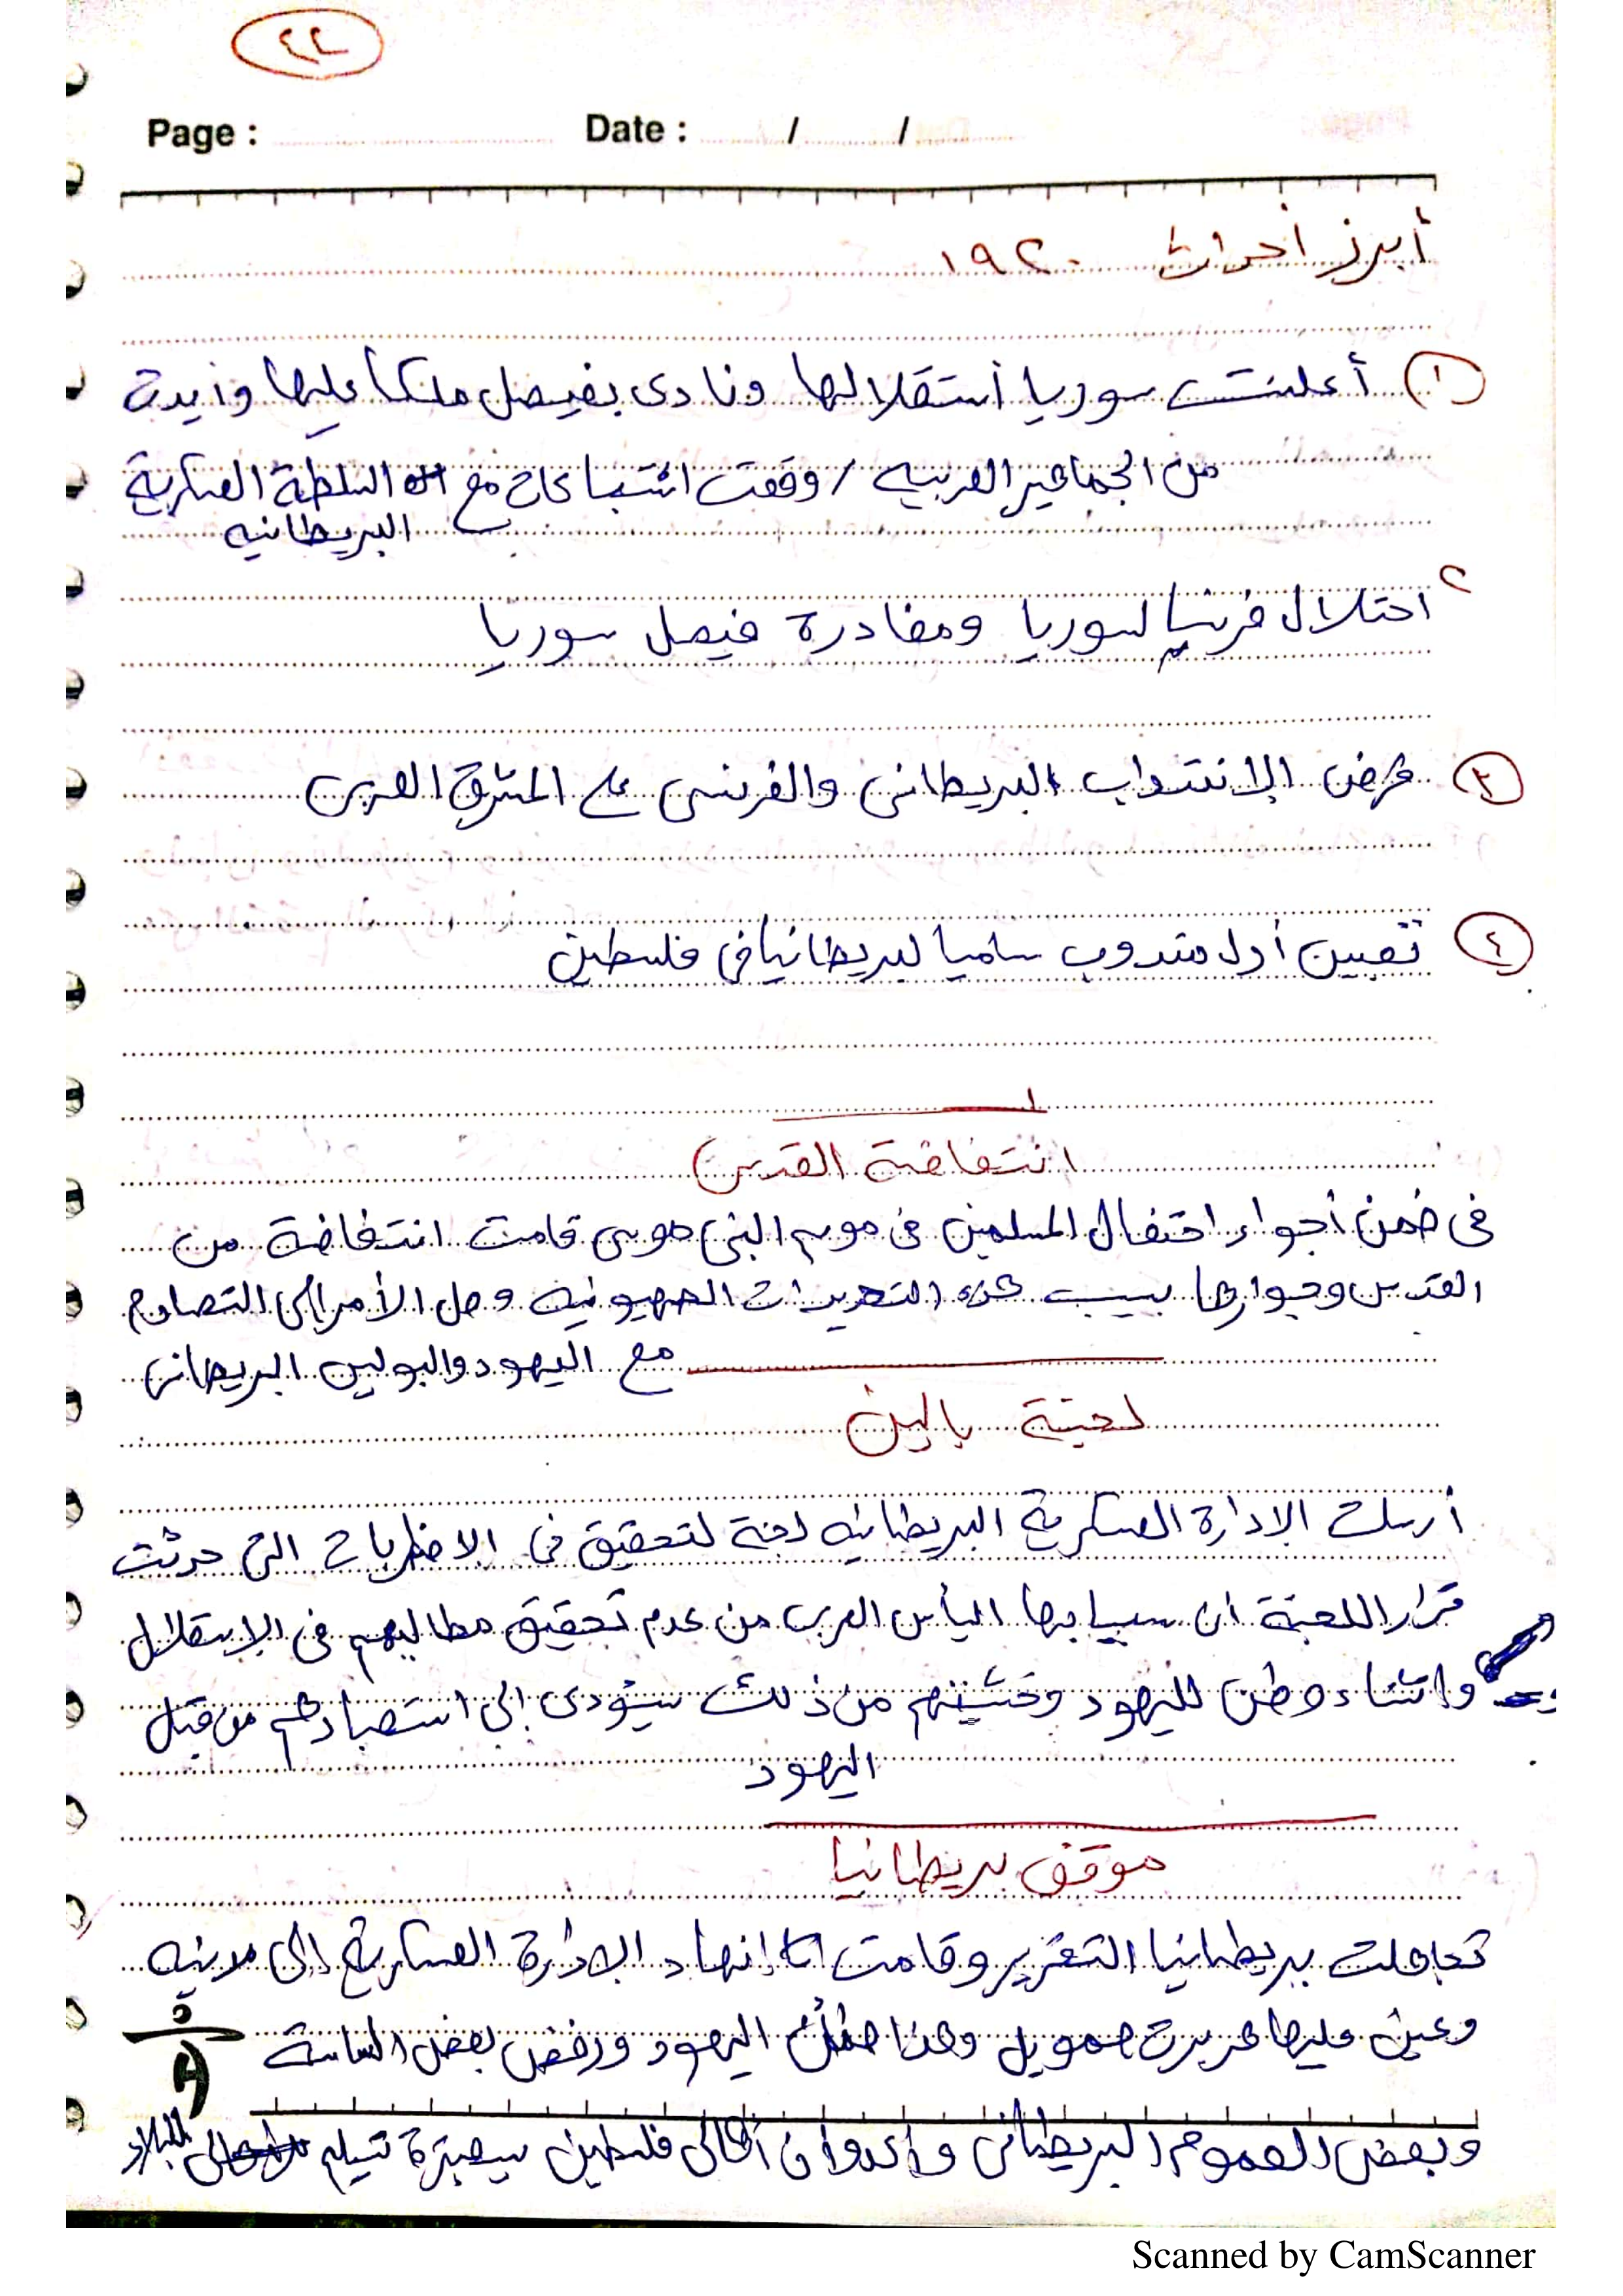 ٢٢
Page : Date : / /
أبرز أحداث ١٩٢٠
١ أعلنت سوريا أستقلالها ونادى بفيصل ملكا عليها وأيدت
من الجماهير العربيه / وقعت اشتباكات مع السلطة العسكرية
البريطانيه
٢
احتلال فرنسا لسوريا ومغادرة فيصل سوريا
٣ فرض الإنتداب البريطانى والفرنسى على المشرق العربى
٤ تعيين أول مندوب ساميا لبريطانيا فى فلسطين
انتفاضة القدس
فى ضمن أجواء احتفال المسلمين فى موسم النبى موسى قامت انتفاضة من
القدس وجوارها بسبب هذه التحديات الصهيونيه وصل الأمر إلى التصادم
مع اليهود والبوليس البريطانى
لجنة بالين
أرسلت الادارة العسكرية البريطانيه لجنة لتحقيق فى الاضطربات التى حدثت
قرار اللجنة ان سببا بها اليأس العرب من عدم تحقيق مطالبهم فى الإستقلال
وانشاء وطن لليهود وخشيتهم من ذلك سيؤدى إلى استعبادهم من قبل
اليهود
موقف بريطانيا
تجاهلت بريطانيا التقرير وقامت إنهاء الإدارة العسكرية إلى مدنيه
وعين عليها هربرت صمويل وهذا اليهود ورفض بعض الساسة
وبعض العموم البريطانى وأعدوا ان أهالى فلسطين تسليم للبلاد
Scanned by CamScanner